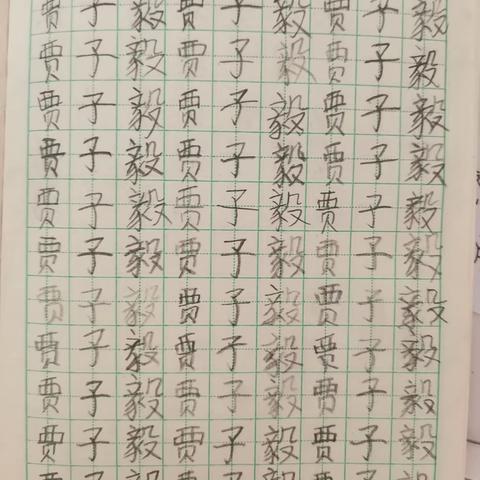 贾子毅贾子毅贾子毅
贾子毅贾子毅贾子毅
贾子毅贾子毅贾子毅
贾子毅贾子毅贾子毅
贾子毅贾子毅贾子毅
贾子毅贾子毅贾子毅
贾子毅贾子毅贾子毅
贾子毅贾子毅贾子毅
贾子毅贾子毅贾子毅
贾子毅贾子毅贾子毅